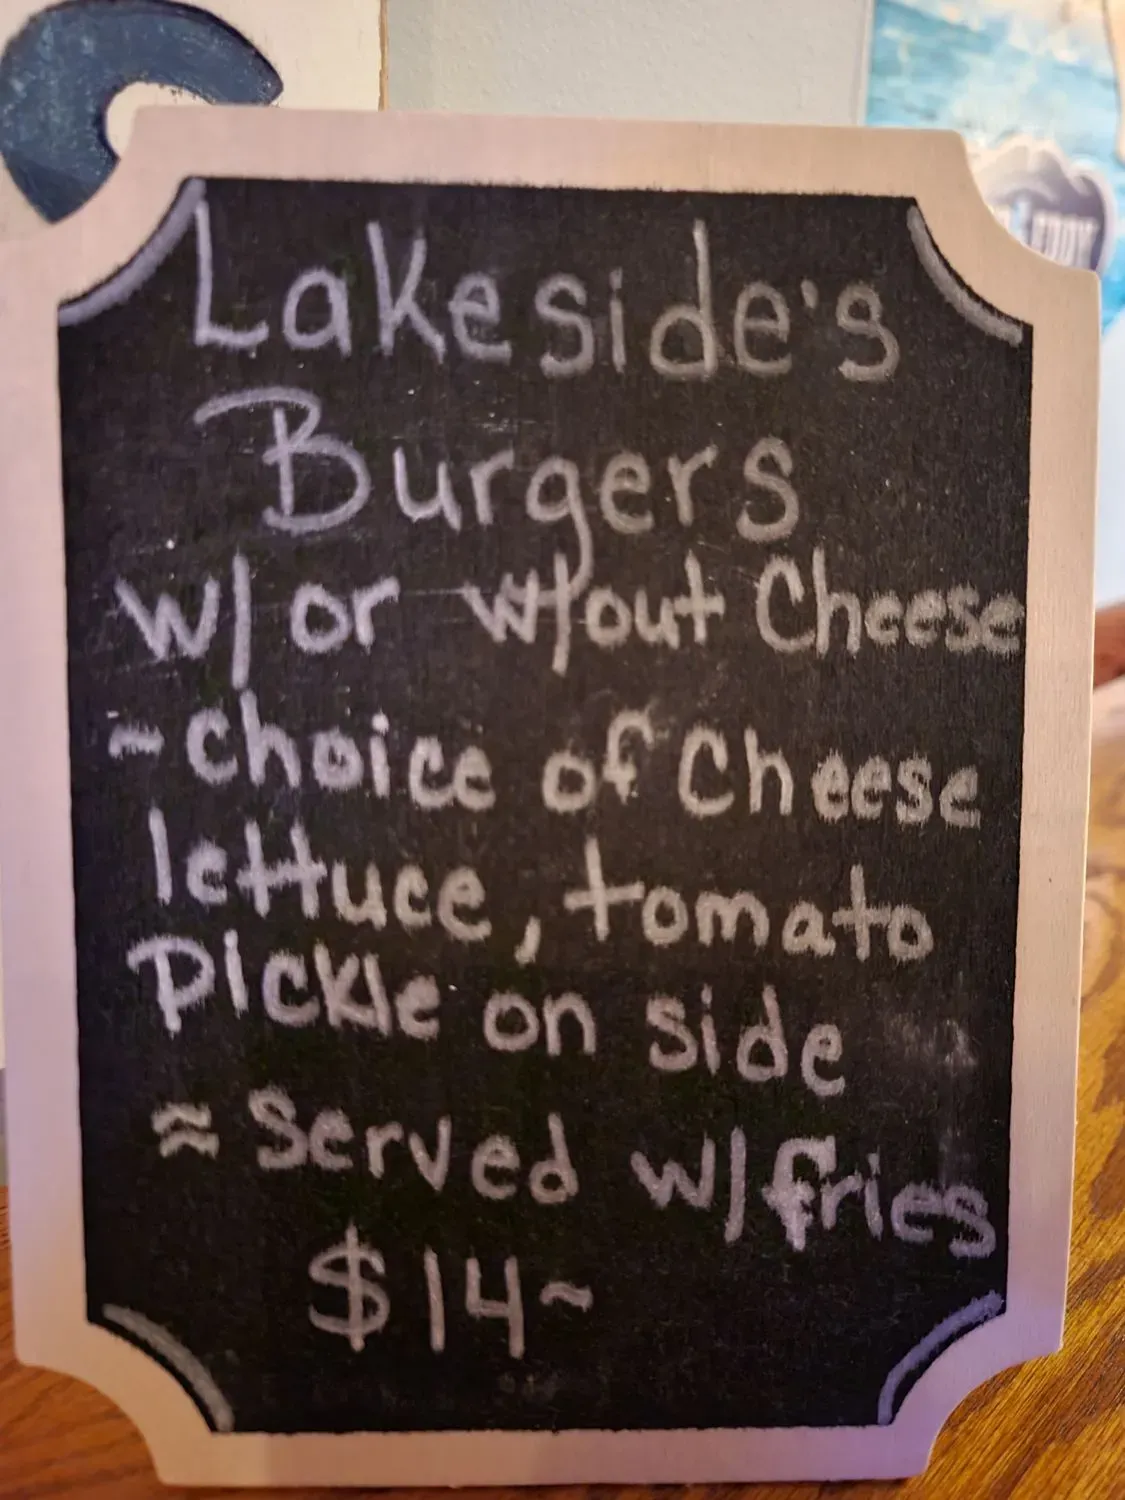 Lakeside's
Burgers
w/ or w/out Cheese
~choice of Cheese
lettuce, tomato
Pickle on side
≈ Served w/fries
$14~